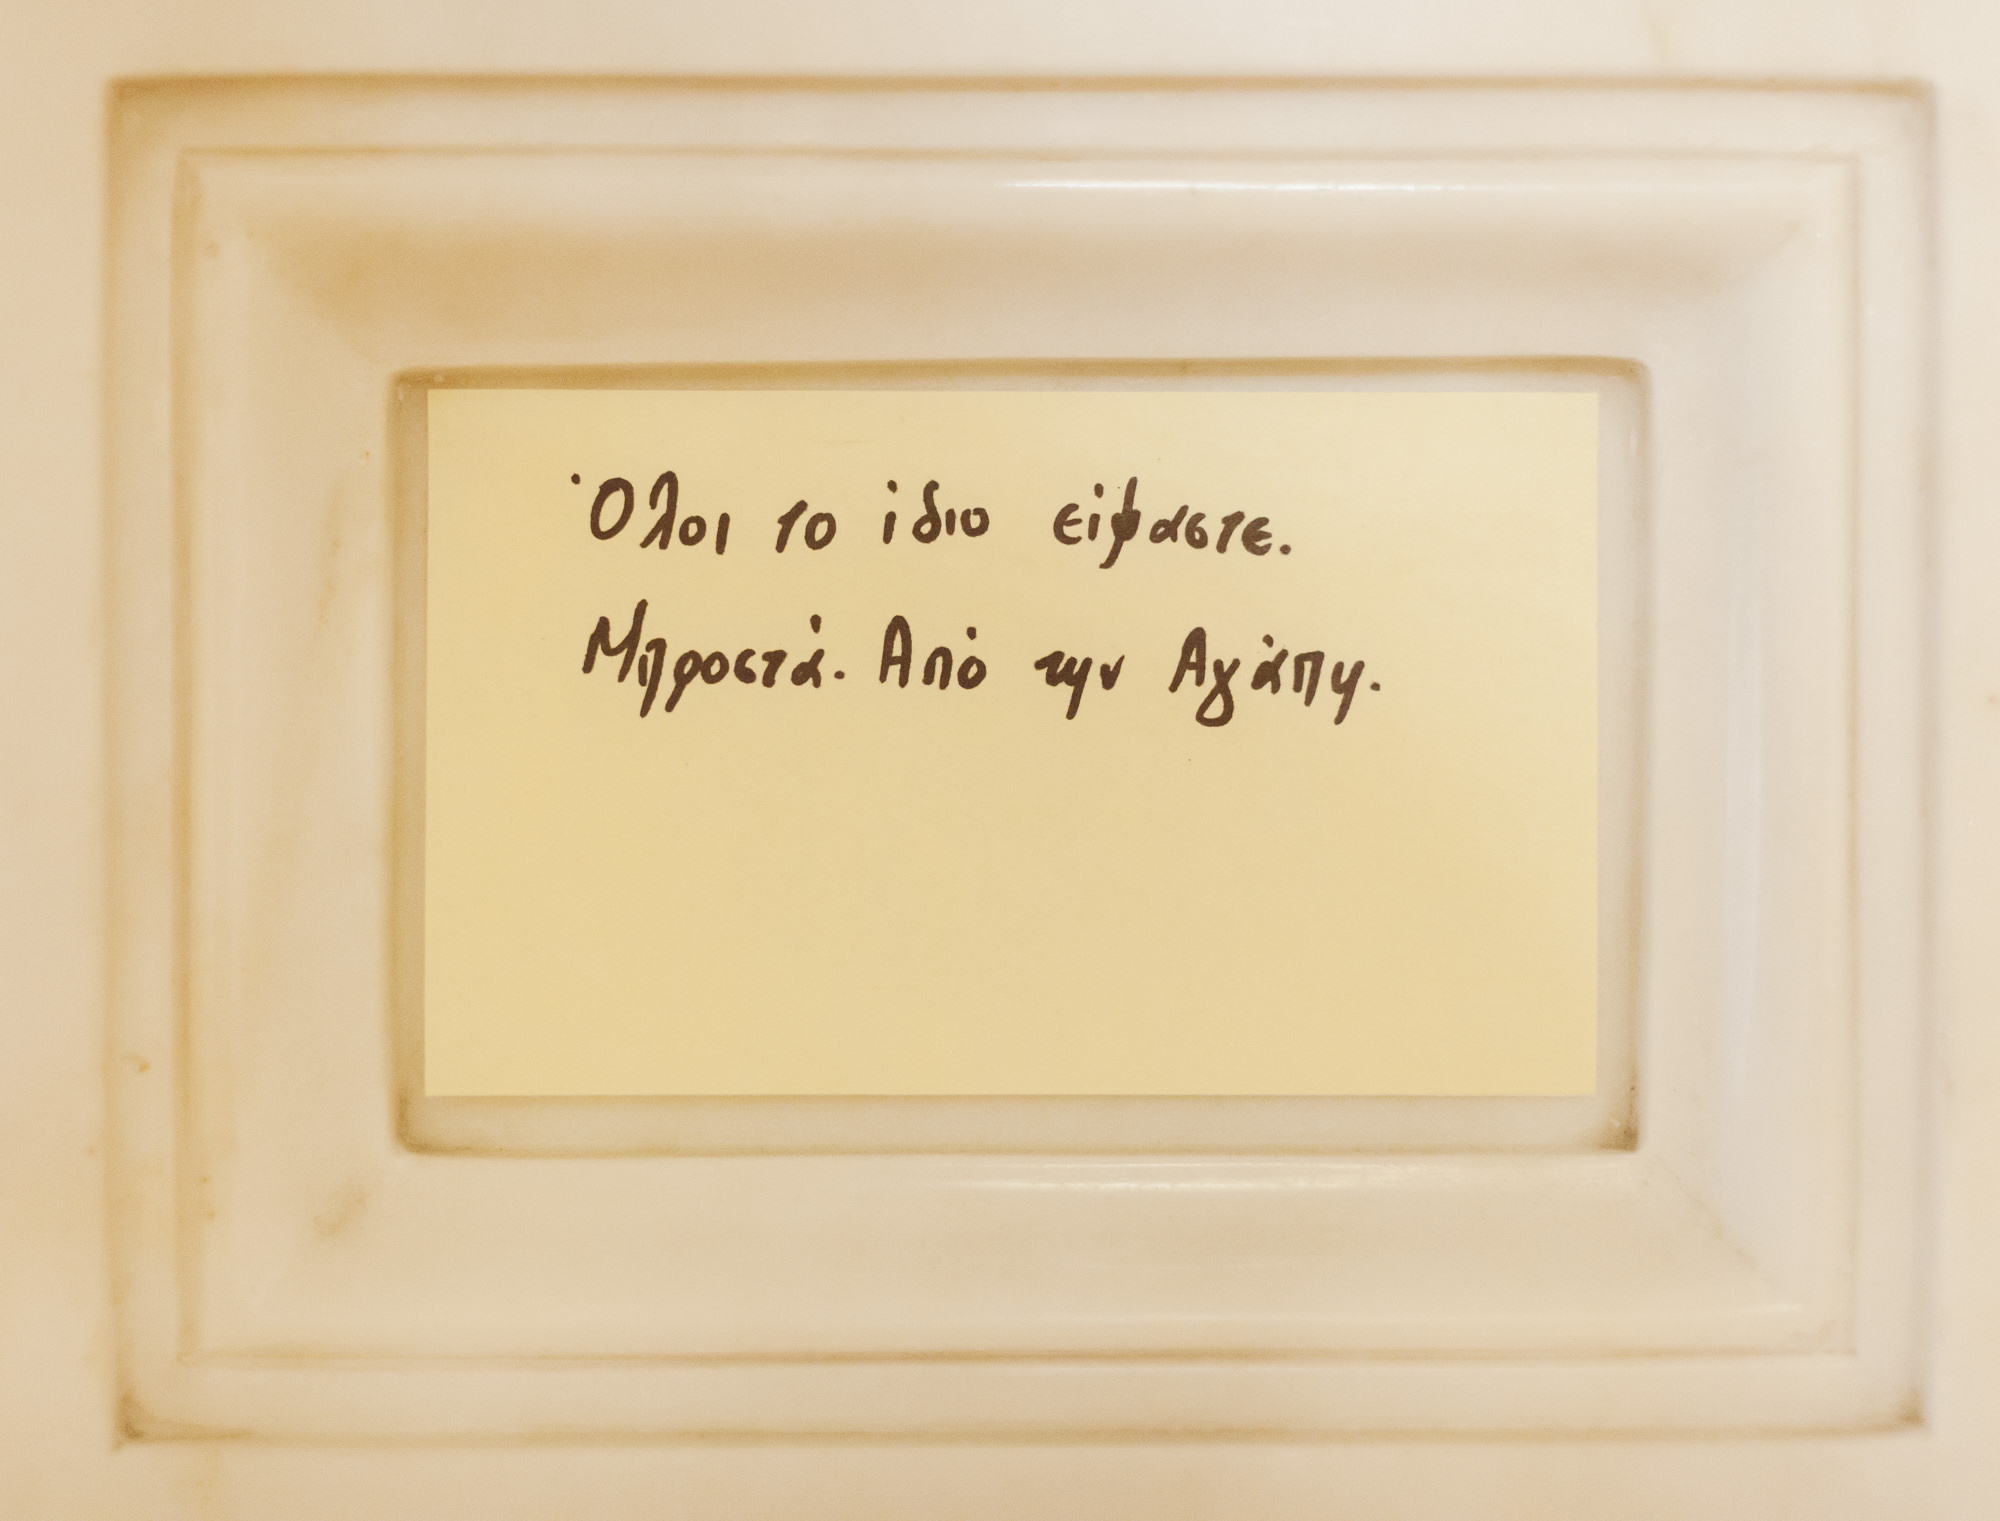 Όλοι το ίδιο είμαστε.
Μπροστά. Από την Αγάπη.